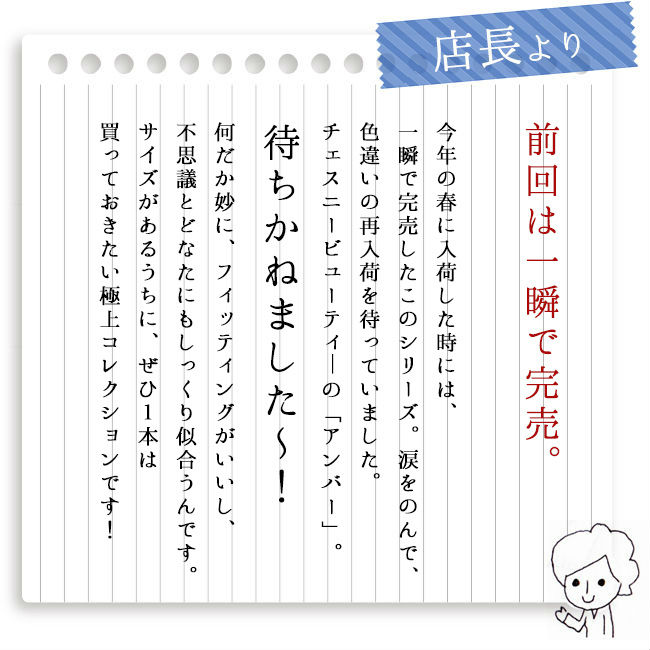 店長より
前回は一瞬で完売。
今年の春に入荷した時には、
一瞬で完売したこのシリーズ。涙をのんで、
色違いの再入荷を待っていました。
チェスニービューティーの「アンバー」。
待ちかねました～！
何だか妙に、フィッティングがいいし、
不思議とどなたにもしっくり似合うんです。
サイズがあるうちに、ぜひ1本は
買っておきたい極上コレクションです！